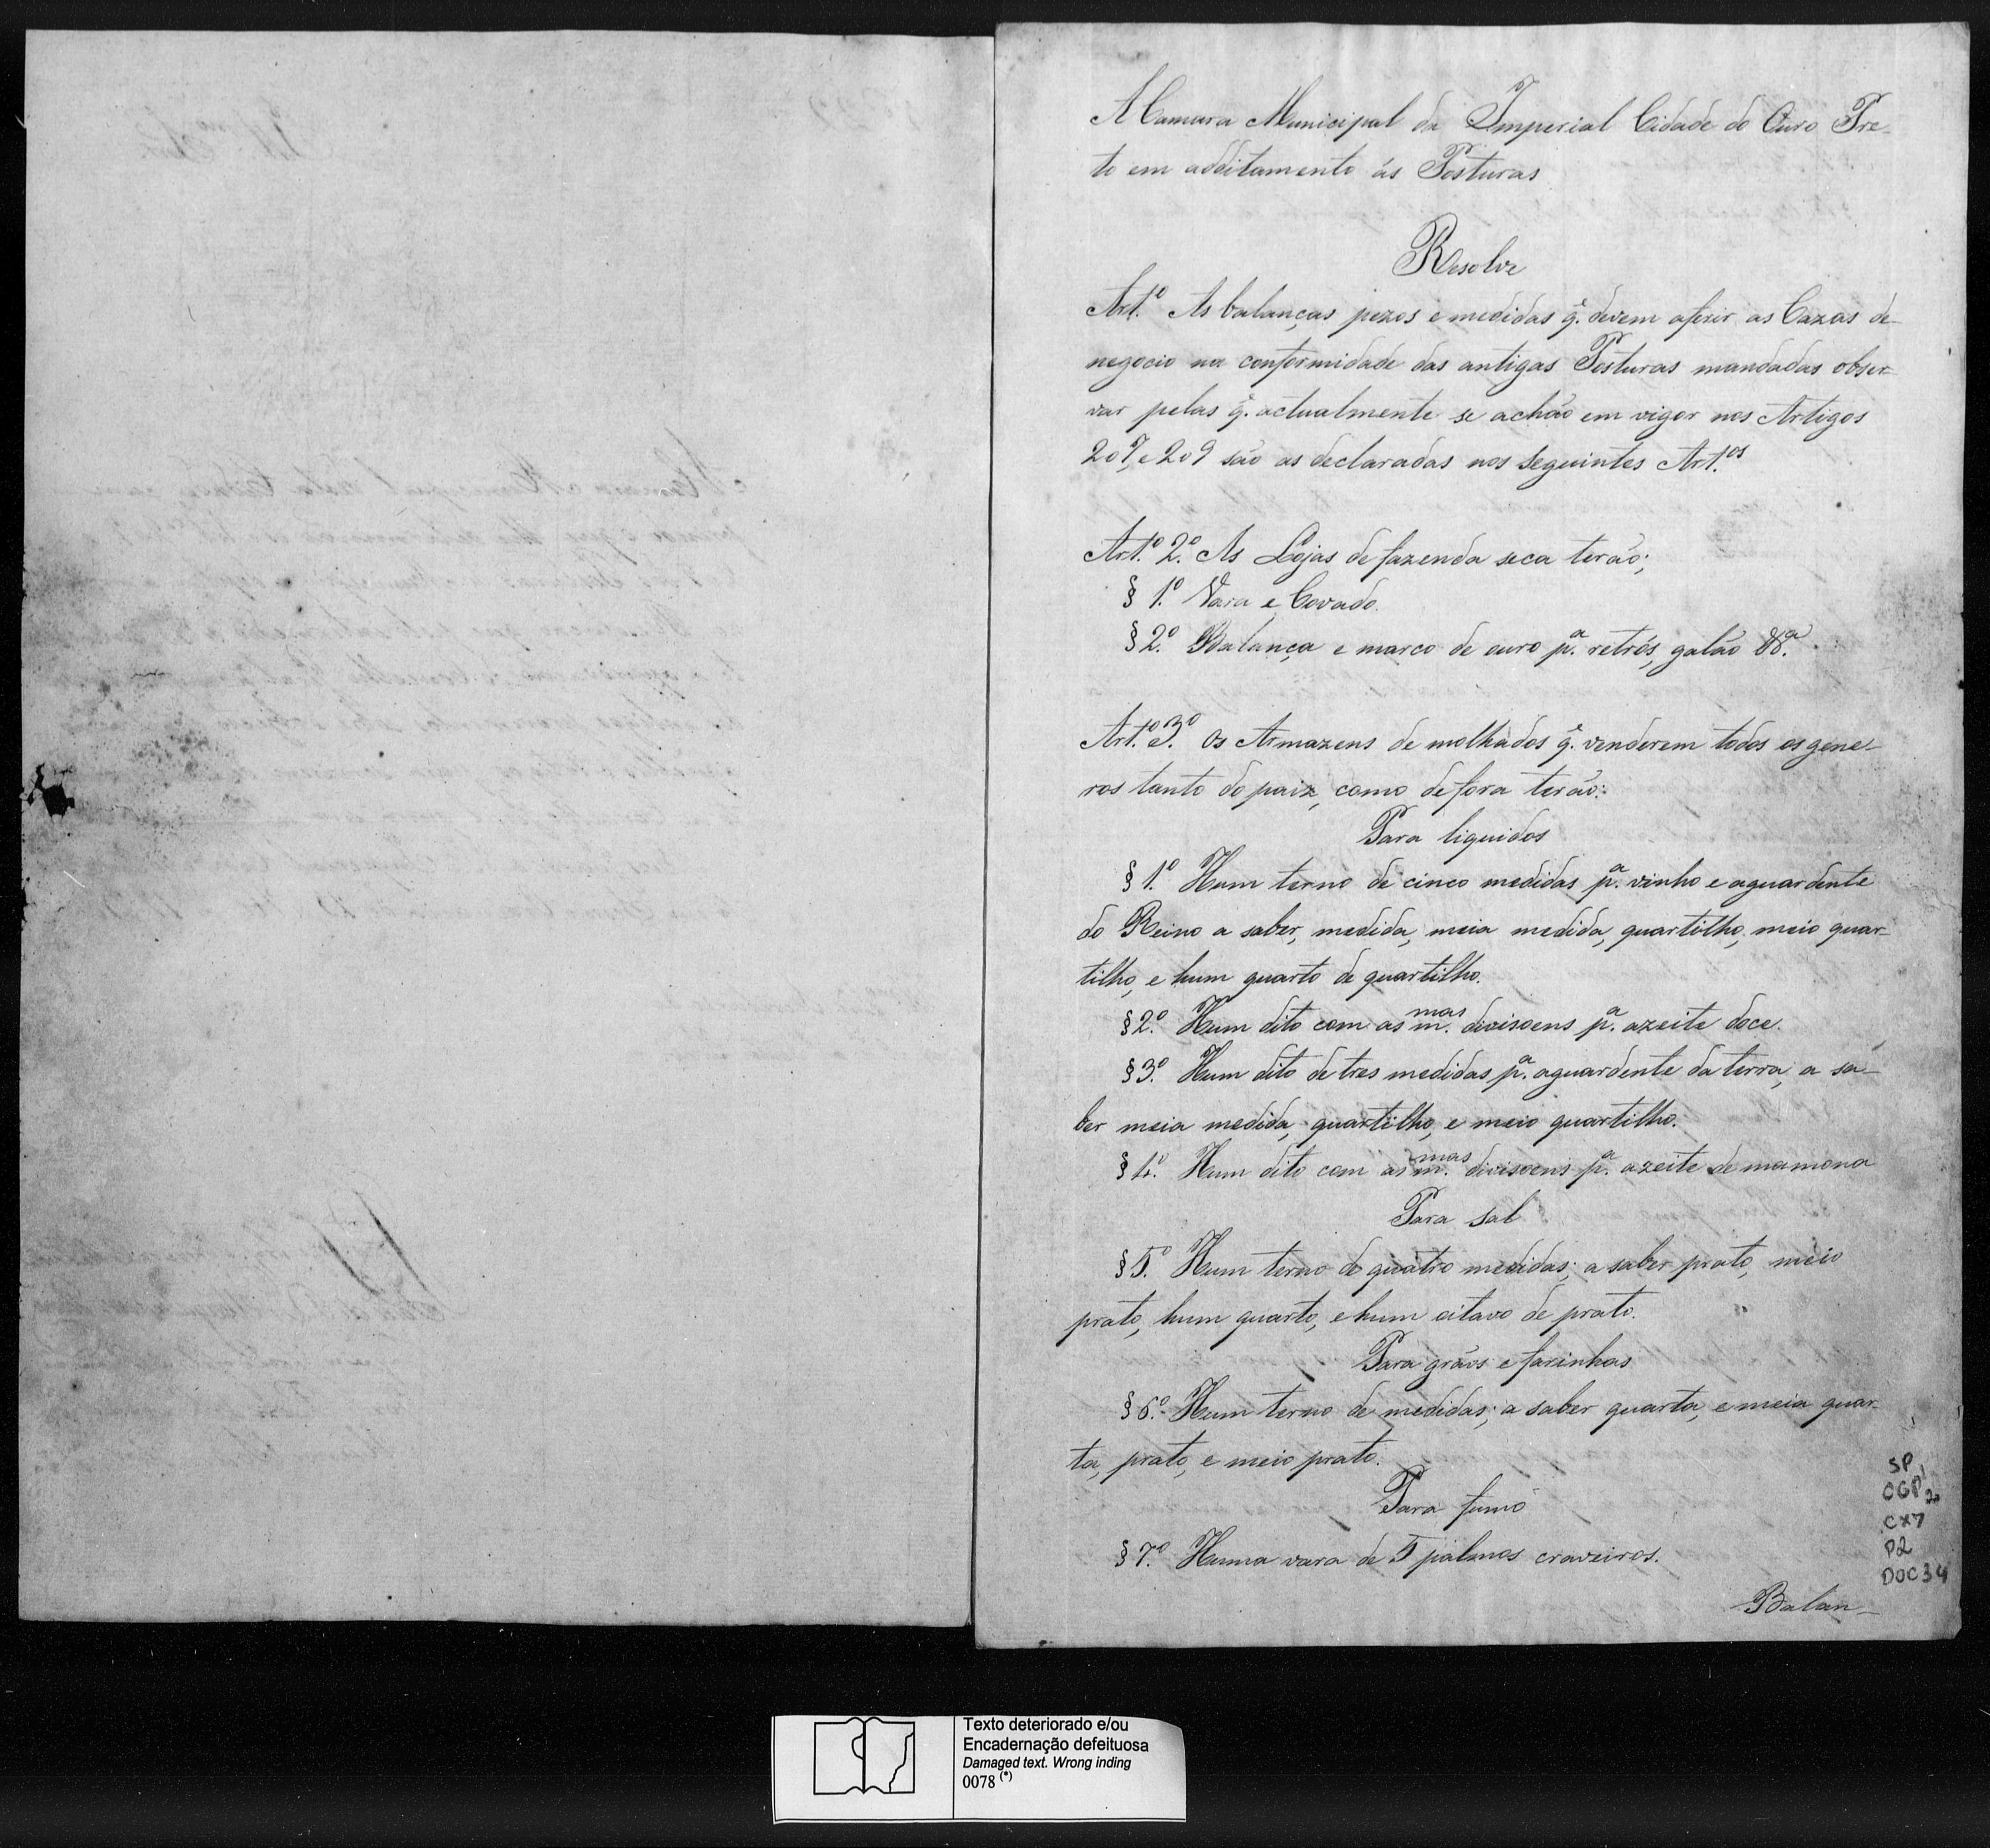 A Camara Municipal da Imperial Cidade do Ouro Pre-
to em additamento ás Posturas
Resolve
Art.º As balanças pezos e medidas q̃. devem aferir as Cazas de
negocio na conformidade das antigas Posturas mandadas obser-
var pelas q̃. actualmente se achão em vigor nos Artigos
207, e 209 são as declaradas nos seguintes Art.os
Art.º 2.º As Lojas de fazenda seca terão;
§ 1.º Vara e Covado.
§ 2.º Balança e marco de ouro p.ª retrós, galão &&.ª
Art.º 3.º Os Armazens de molhados q̃. venderem todos os gene-
ros tanto do paiz, como de fora terão:
Para liquidos
§ 1.º Hum terno de cinco medidas p.ª vinho e aguardente
do Reino a saber, medida, meia medida, quartilho, meio quar-
tilho, e hum quarto de quartilho.
§ 2.º Hum dito com as m.mas divisoens p.ª azeite doce.
§ 3.º Hum dito de tres medidas p.ª aguardente da terra, a sa-
ber meia medida, quartilho, e meio quartilho.
§ 4.º Hum dito com as m.mas divisoens p.ª azeite de mamona
Para sal
§ 5.º Hum terno de quatro medidas; a saber prato, meio
prato, hum quarto, e hum oitavo de prato.
Para grãos e farinhas
§ 6.º Hum terno de medidas; a saber quarta, e meia quar-
ta, prato, e meio prato.
Para fumo
§ 7.º Huma vara de 5 palmos craveiros.
Balan-
SP
OGP 1/2
CX7
P2
DOC 34
Texto deteriorado e/ou
Encadernação defeituosa
Damaged text. Wrong inding
0078 (*)